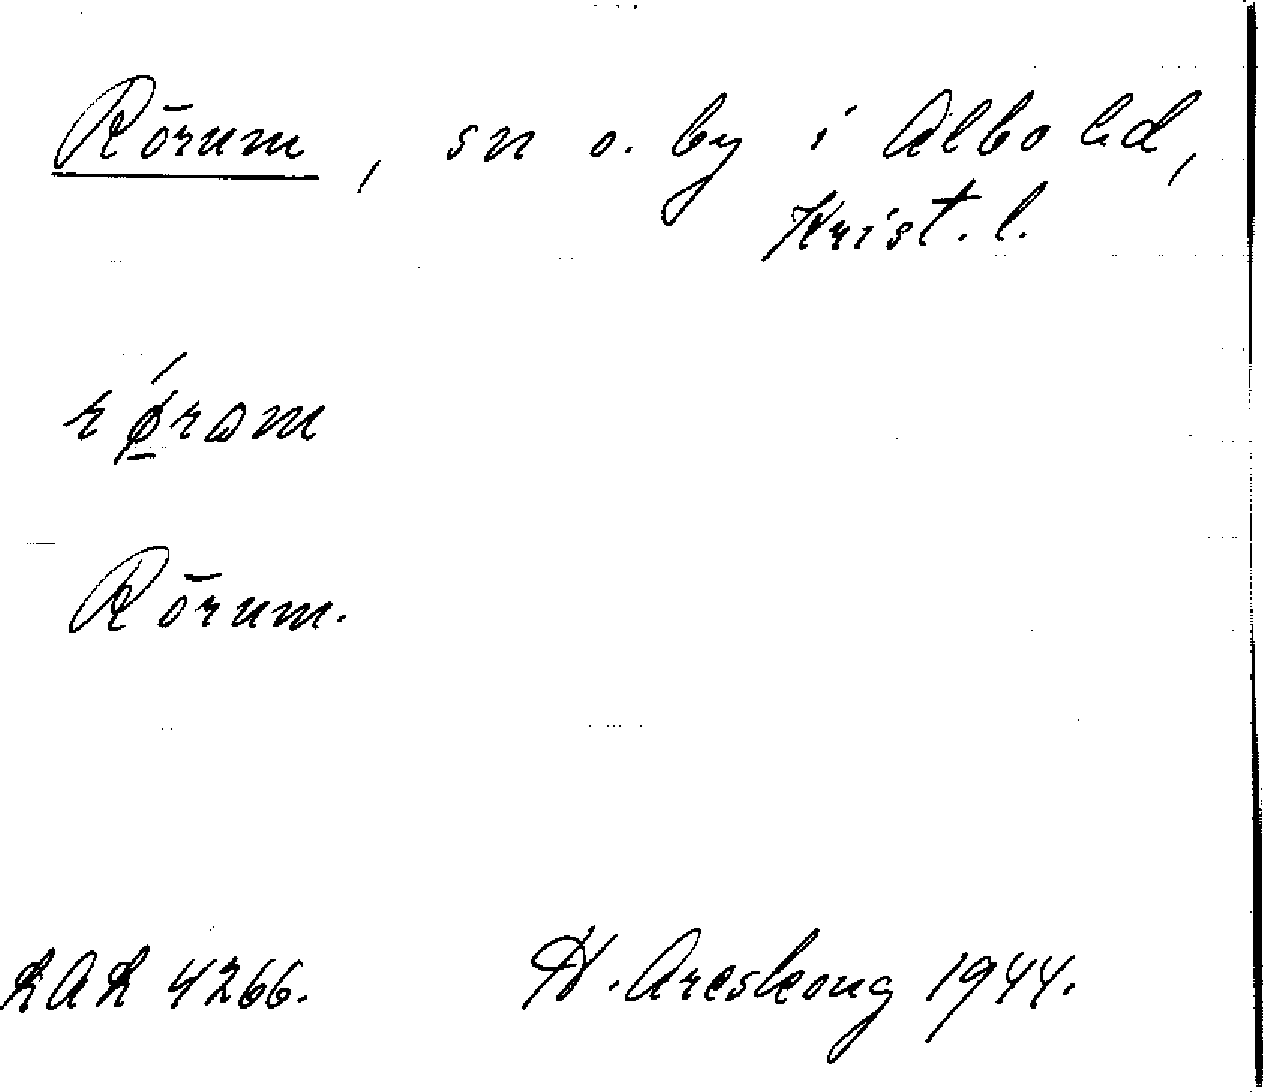 Rörum, sn o. by i Albo hd,
Krist. l.
rǿ̱ram
Rörum.
LAL 4266. H. Areskoug 1944.